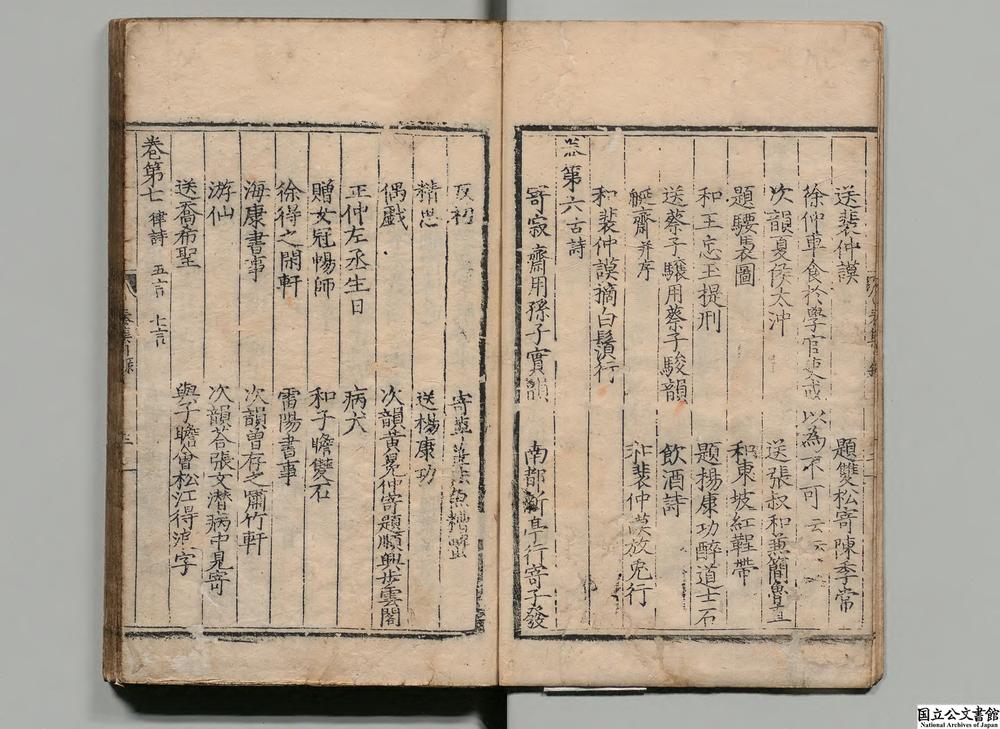 送裴仲謨　題雙松寄陳季常
徐仲車食於學官或以為不可云云
次韻夏侯太沖　送張叔和兼簡魯直
題騕褭圖　和東坡紅鞓帶
和王忘玉提刑　題揚康功醉道士石
送蔡子驤用蔡子駿韻　飲酒詩
艇齋并序　和裴仲謨放兔行
和裴仲謨摘白鬚行
第六古詩
寄寂齋用孫子實韻　南都新亭行寄子發
反初　寄蓴薑法魚糟蟹
精思　送楊康功
偶戲　次韻黃冕仲寄題順興步雲閣
正仲左丞生日　病犬
贈女冠暢師　和子瞻雙石
徐得之閑軒　雷陽書事
海康書事　次韻曾存之嘯竹軒
游仙　次韻荅張文潛病中見寄
送喬希聖　與子瞻會松江得浪字
卷第七律詩　五言　七言
国立公文書館
National Archives of Japan